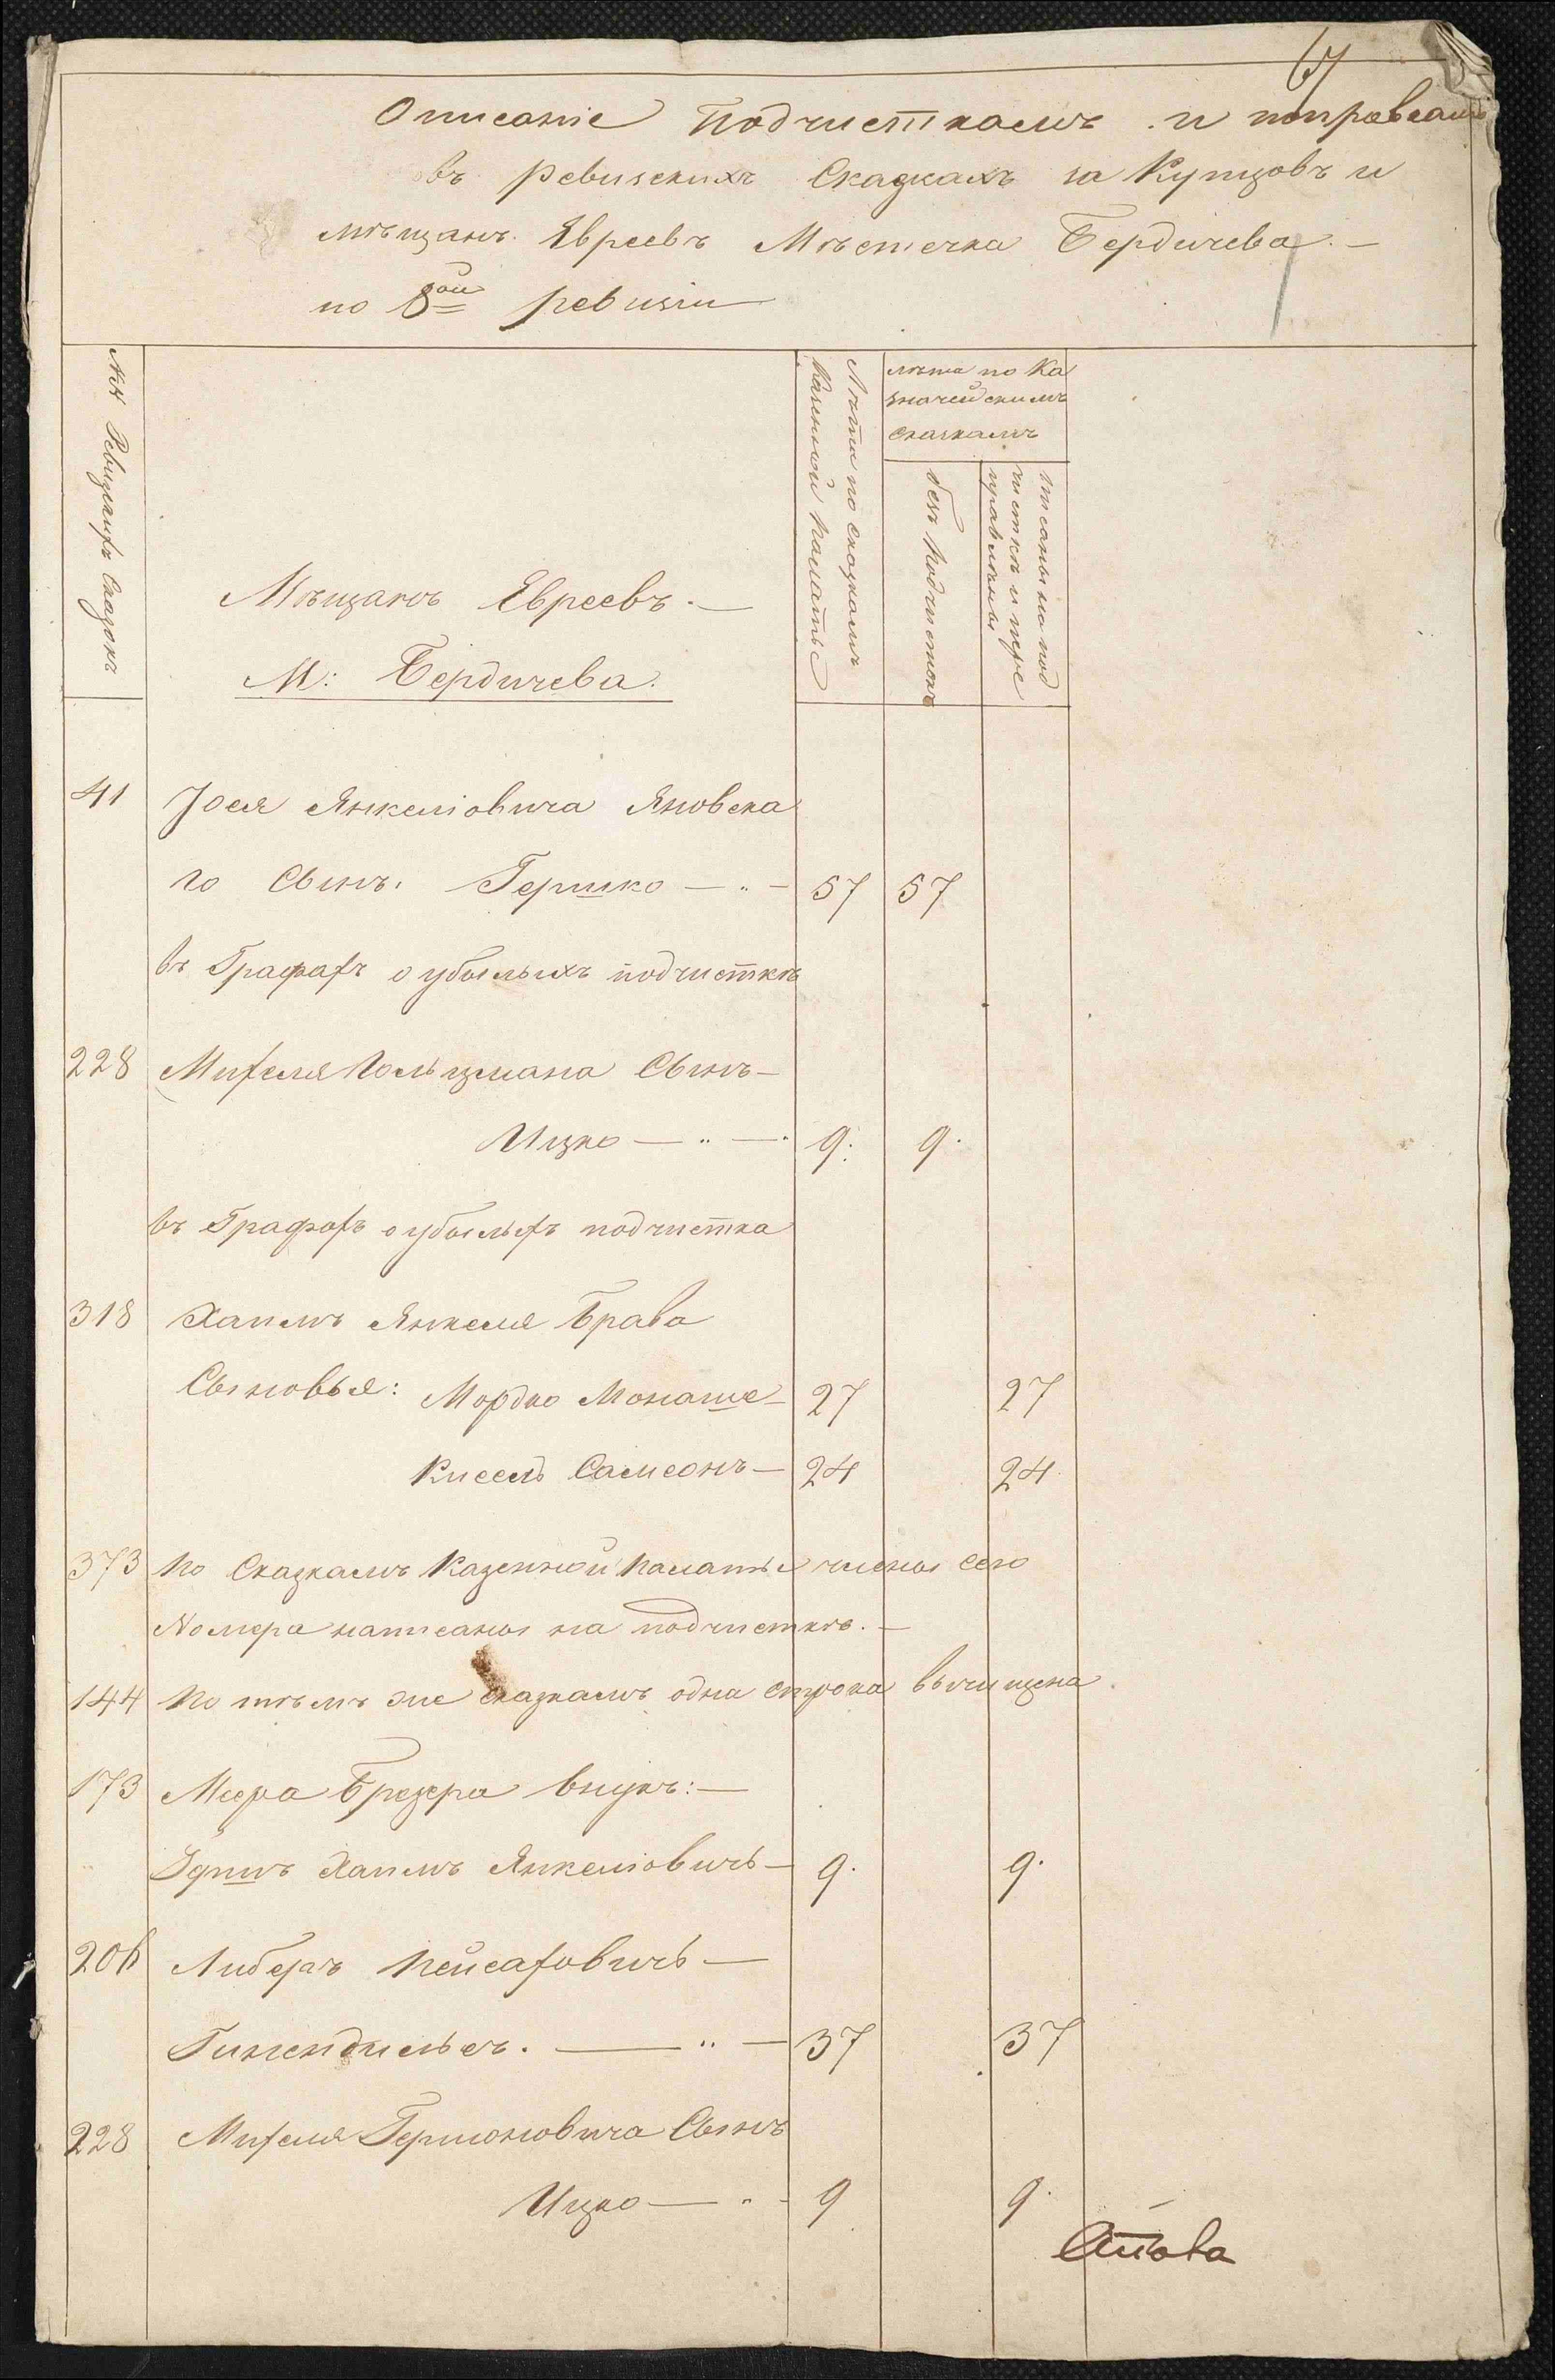 Описаніе подчисткамъ и поправкамъ
въ ревизскихъ Сказкахъ за Купцовъ и
мѣщанъ Евреевъ Мѣстечка Бердичева. —
по 8ой ревизіи
№№ Ревизскихъ Сказокъ
Лѣта по сказкамъ
Казенной Палаты
лѣта по Ка
значейскимъ
сказкамъ
безъ подчистокъ
писаны на под
чисткѣ и пере
правлены
Мѣщанъ Евреевъ. —
М: Бердичева.
41 Іося Янкеліовича Яновска
го Сынъ: Гершко — „ — 57 57
въ Графахъ о убылыхъ подчистки
228 Михеля Гольцмана Сынъ —
Ицко — „ — 9. 9.
въ Графахъ о убылыхъ подчистка
318 Хаимъ Янкеля Брава
Сыновья: Мордко Монаше — 27 27
Кисель Самсонъ — 24 24
373 По Сказкамъ Казенной Палаты члены сего
Номера написаны на подчисткѣ. —
144 По тѣмъ же сказкамъ одна строка вычищена
173 Меера Брезера внукъ: —
Зусь Хаимъ Янкеліовичъ — 9. 9.
206 Либеръ Пейсаховичъ —
— „ — 37 37
228 Михеля Гершоновича Сынъ
Ицко — „ — 9 9.